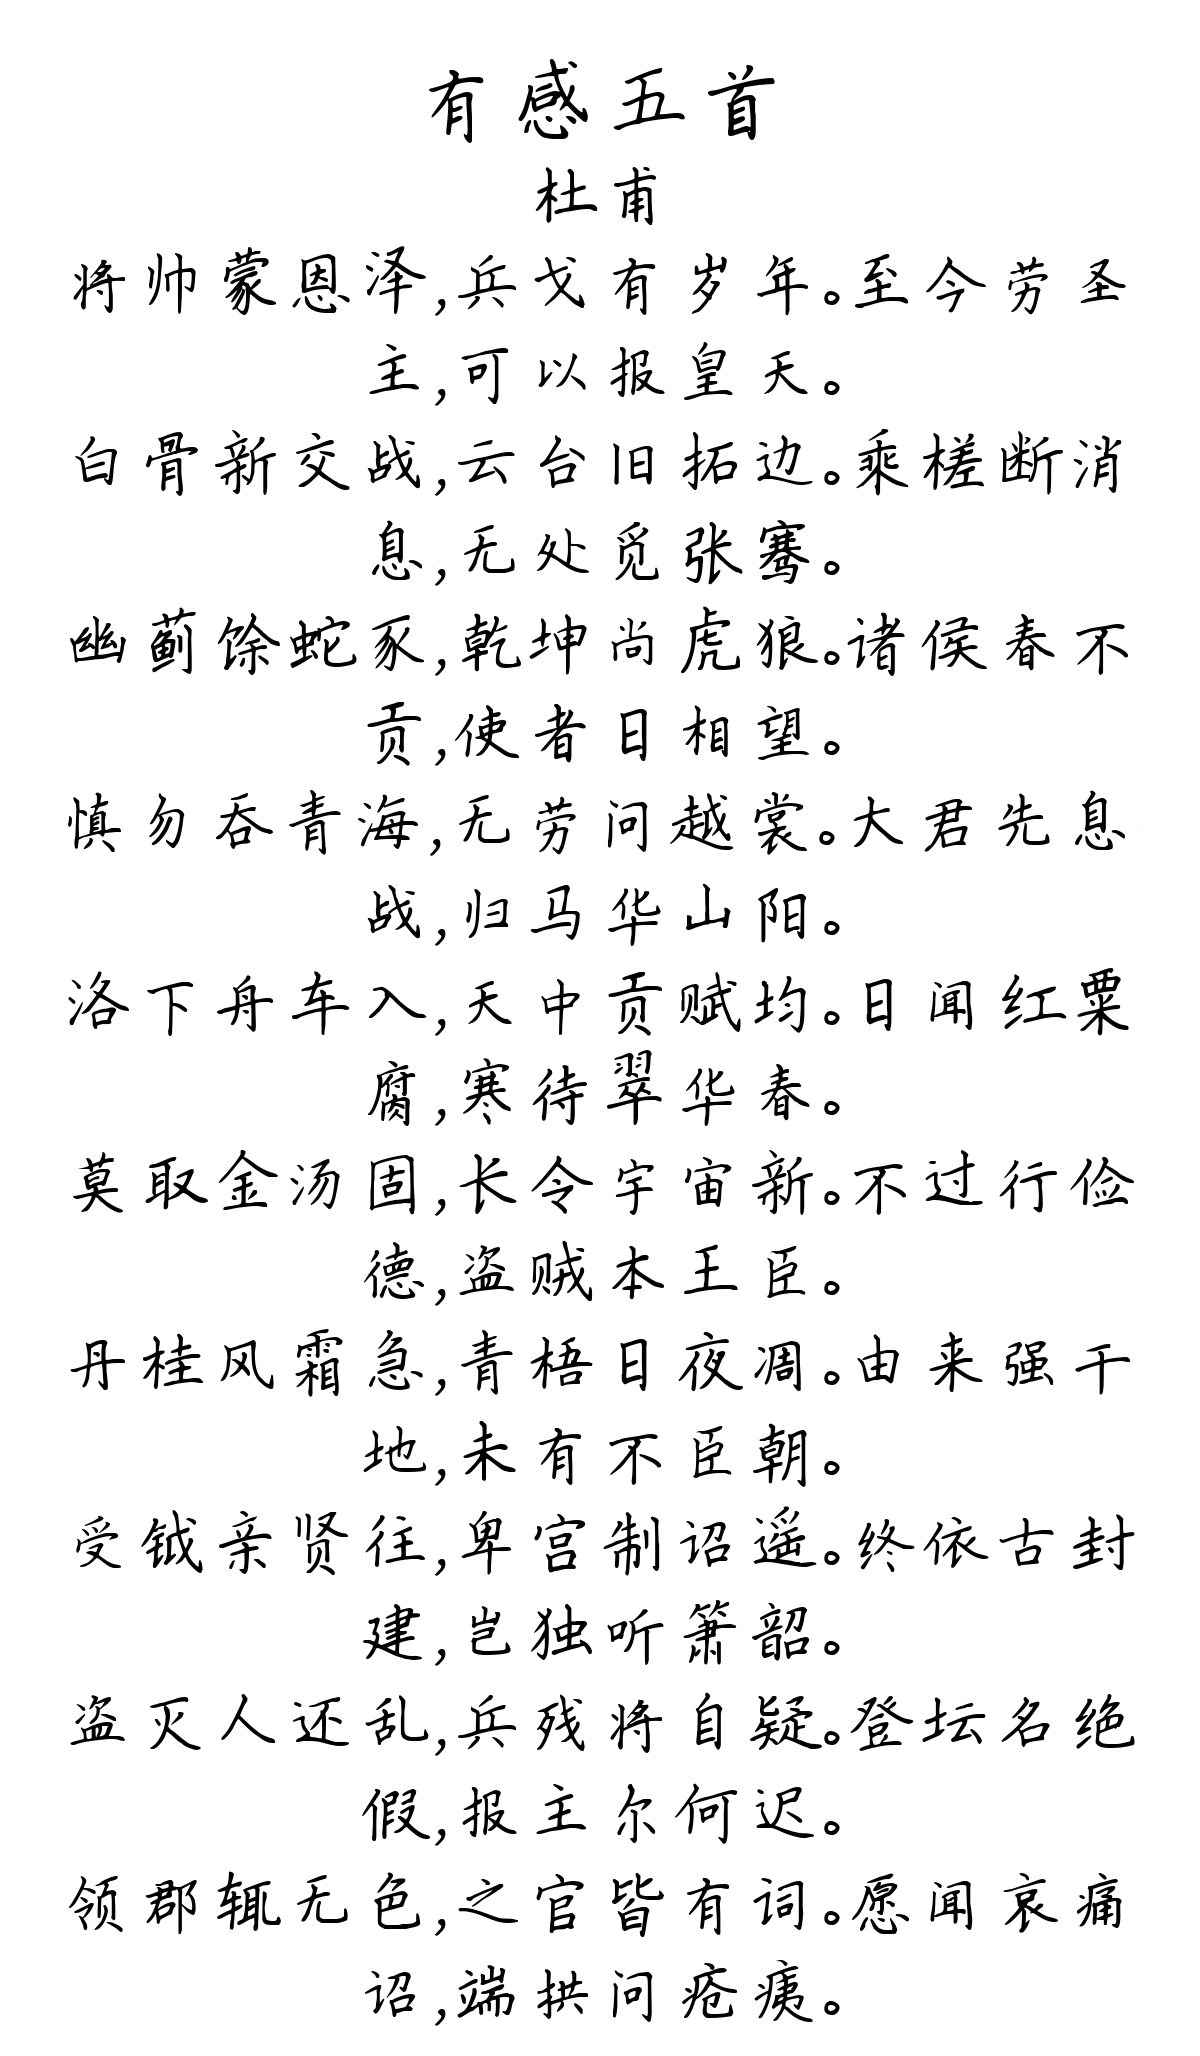 有感五首
杜甫
将帅蒙恩泽,兵戈有岁年。至今劳圣
主,可以报皇天。
白骨新交战,云台旧拓边。乘槎断消
息,无处觅张骞。
幽蓟馀蛇豕,乾坤尚虎狼。诸侯春不
贡,使者日相望。
慎勿吞青海,无劳问越裳。大君先息
战,归马华山阳。
洛下舟车入,天中贡赋均。日闻红粟
腐,寒待翠华春。
莫取金汤固,长令宇宙新。不过行俭
德,盗贼本王臣。
丹桂风霜急,青梧日夜凋。由来强干
地,未有不臣朝。
受钺亲贤往,卑宫制诏遥。终依古封
建,岂独听箫韶。
盗灭人还乱,兵残将自疑。登坛名绝
假,报主尔何迟。
领郡辄无色,之官皆有词。愿闻哀痛
诏,端拱问疮痍。